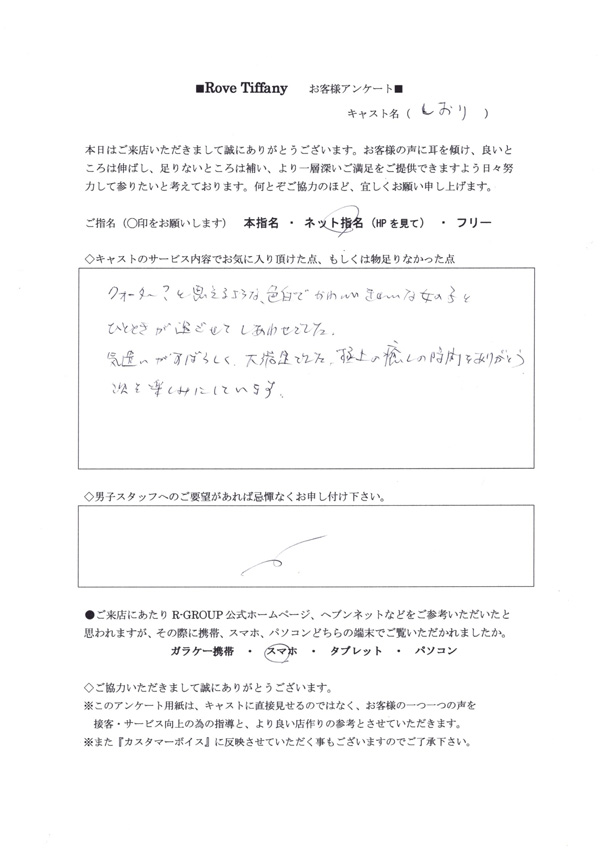 ■Rove Tiffany お客様アンケート■
キャスト名（ しおり ）
本日はご来店いただきまして誠にありがとうございます。お客様の声に耳を傾け、良いと
ころは伸ばし、足りないところは補い、より一層深いご満足をご提供できますよう日々努
力して参りたいと考えております。何とぞご協力のほど、宜しくお願い申し上げます。
ご指名（〇印をお願いします） 本指名 ・ ネット指名（HPを見て） ・ フリー
◇キャストのサービス内容でお気に入り頂けた点、もしくは物足りなかった点
クォーター？と思えるような、色白でかわいいきれいな女の子と
ひとときが過ごせてしあわせでした。
気遣いがすばらしく、大満足でした。極上の癒しの時間をありがとう
次も楽しみにしています。
◇男子スタッフへのご要望があれば忌憚なくお申し付け下さい。
●ご来店にあたり R-GROUP 公式ホームページ、ヘブンネットなどをご参考いただいたと
思われますが、その際に携帯、スマホ、パソコンどちらの端末でご覧いただかれましたか。
ガラケー携帯 ・ スマホ ・ タブレット ・ パソコン
◇ご協力いただきまして誠にありがとうございます。
※このアンケート用紙は、キャストに直接見せるのではなく、お客様の一つ一つの声を
接客・サービス向上の為の指導と、より良い店作りの参考とさせていただきます。
※また『カスタマーボイス』に反映させていただく事もございますのでご了承下さい。